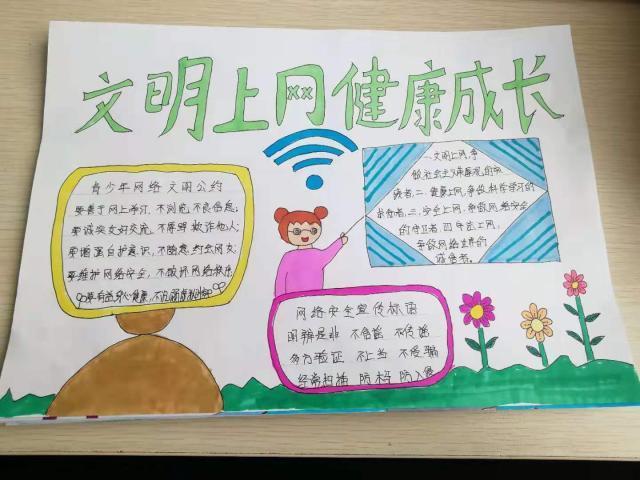 文明上网健康成长
青少年网络文明公约
要善于网上学习,不浏览不良信息;
要诚实友好交流,不辱骂欺诈他人;
要增强自护意识,不随意约会网友;
要维护网络安全,不破坏网络秩序
要有益身心健康,不沉溺虚拟时空
一.文明上网,争
做社会主义荣辱观的实
践者,二.健康上网,争做科学学习的
求知者,三.安全上网,争做网络安全
的守卫者,四.守法上网,
争做网络世界的
诚信者。
网络安全宣传标语
明辨是非 不信谣 不传谣
多方验证 不上当 不受骗
经常扫描 防木马 防入侵